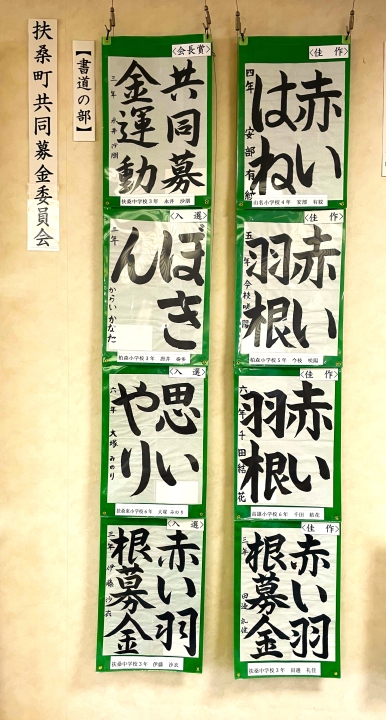 扶桑町共同募金委員会
【書道の部】
<会長賞>
共同募
金運動
三年 永井 沙朋
扶桑中学校3年 永井 沙朋
<入 選>
ぼき
ん
二年 からい かなた
<入 選>
思い
やり
六年 大塚 みのり
扶桑東小学校6年 大塚 みのり
<入 選>
赤い羽
根募金
三年 伊藤 沙衣
扶桑中学校3年 伊藤 沙衣
<佳 作>
赤い
はね
四年 安部 有紋
山名小学校4年 安部 有紋
<佳 作>
赤い
羽根
五年 今枝 咲陽
柏森小学校5年 今枝 咲陽
<佳 作>
赤い
羽根
六年 千田 結花
高雄小学校6年 千田 結花
<佳 作>
赤い羽
根募金
三年 田邉 礼佳
扶桑中学校3年 田邉 礼佳